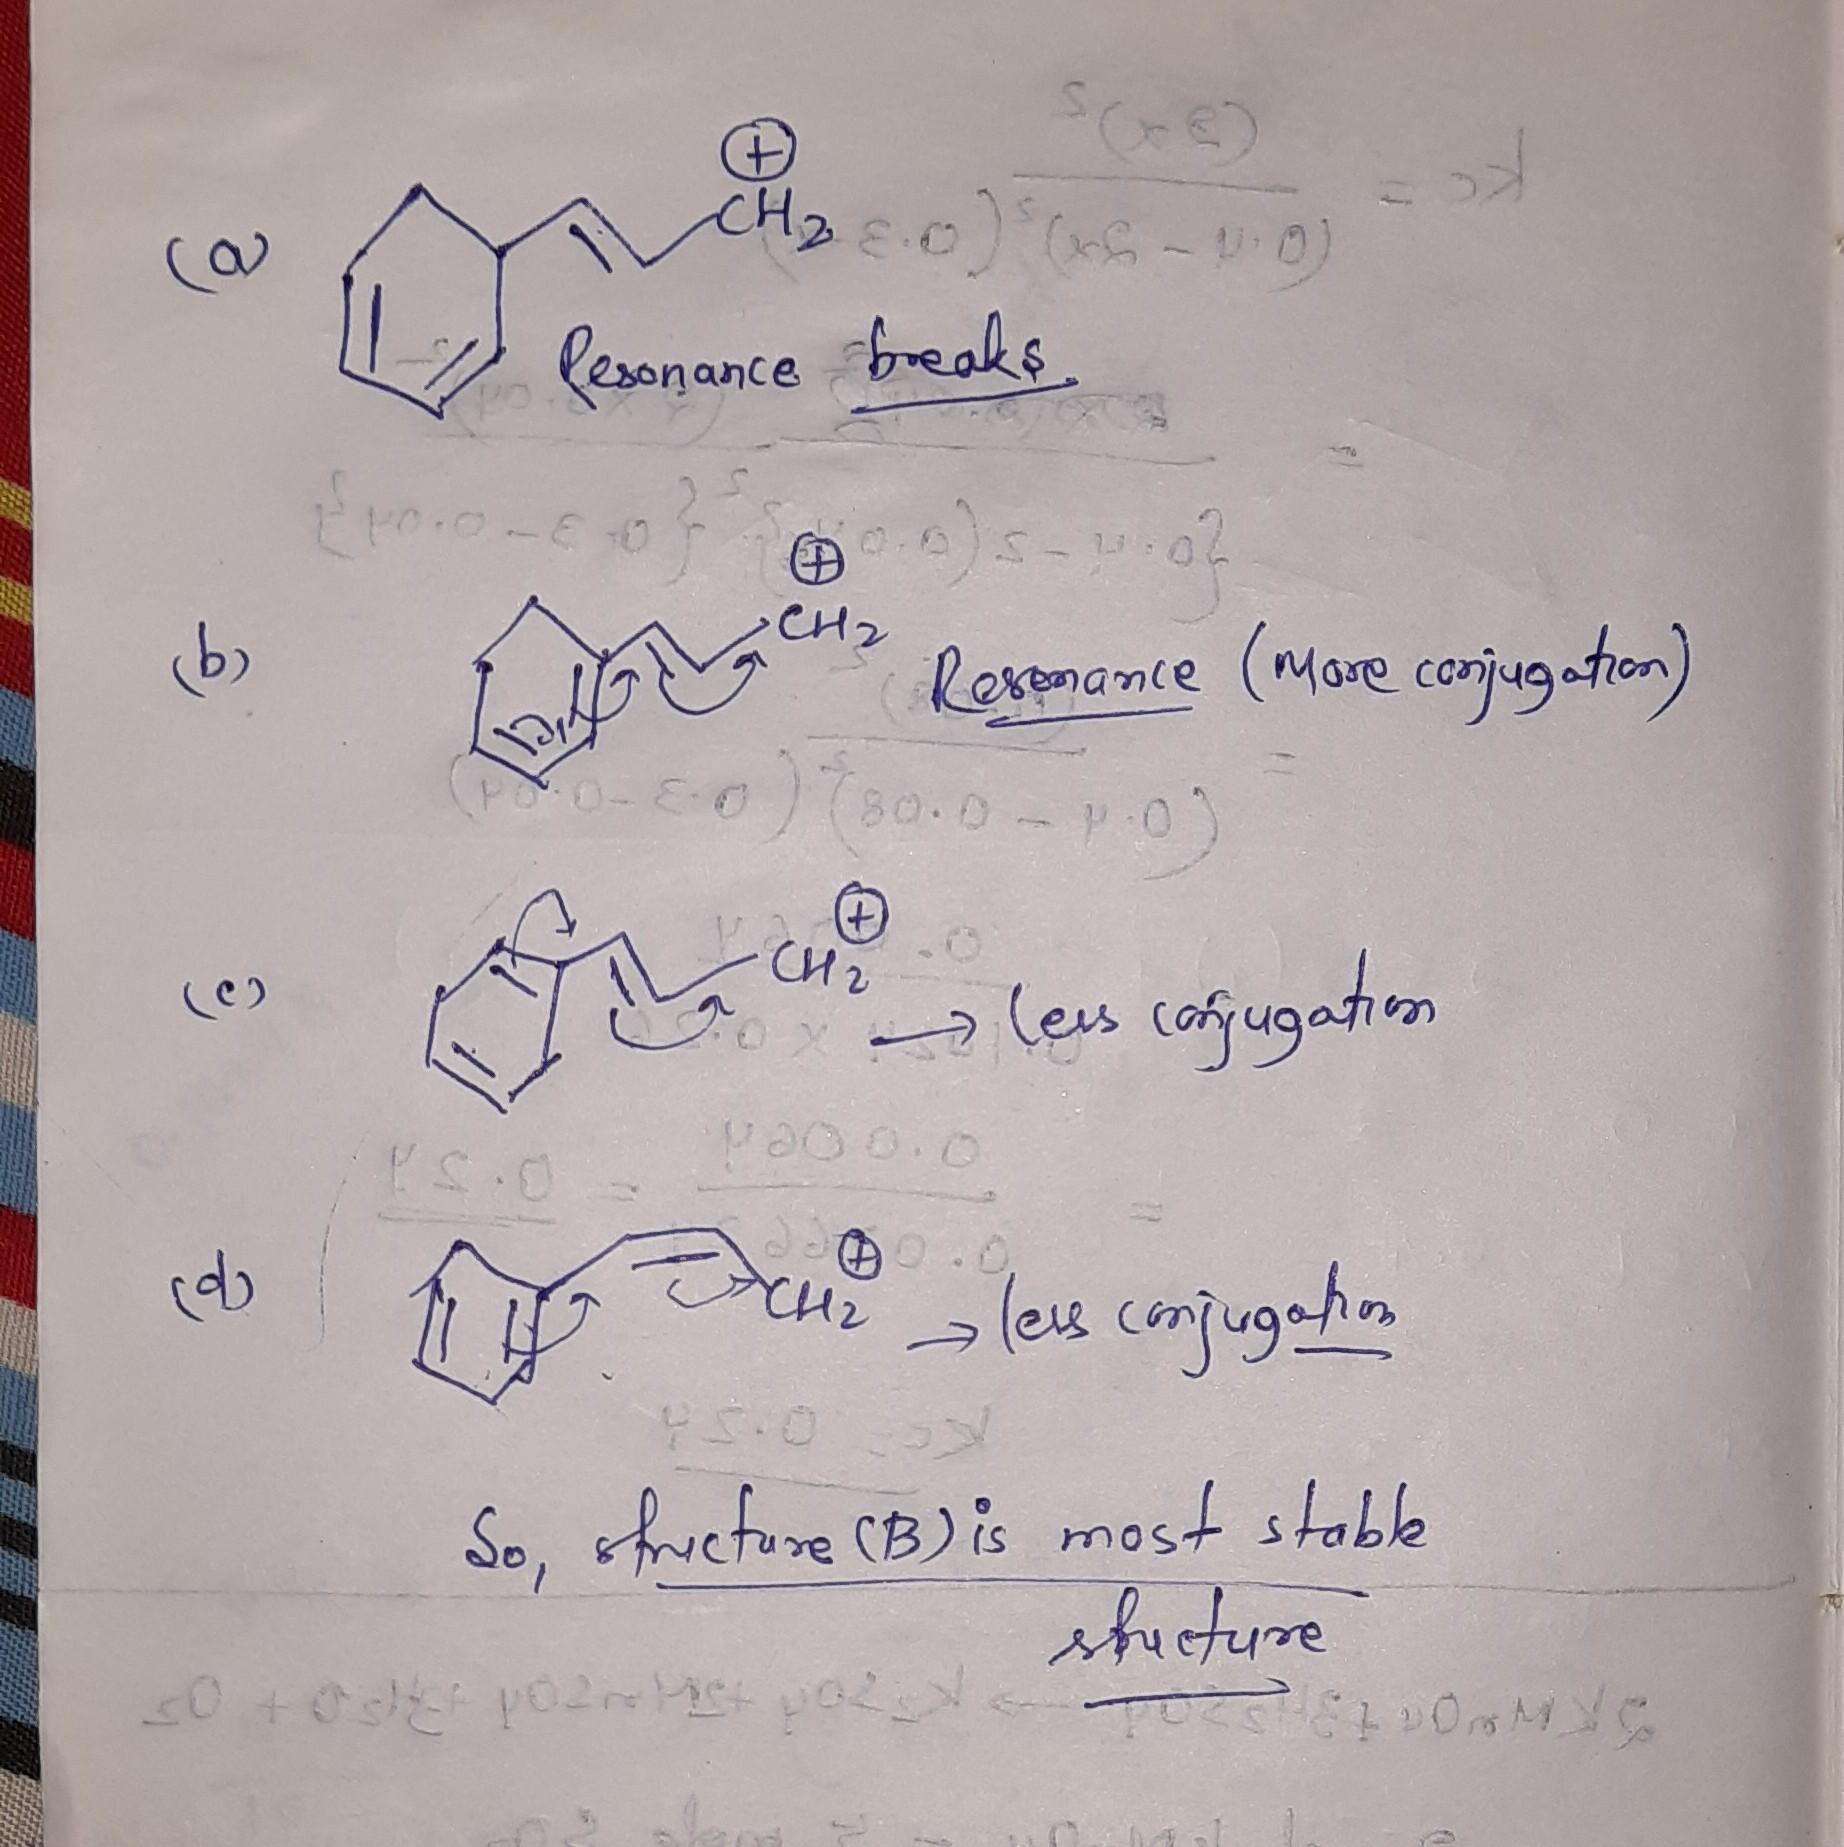 (a) CH₂ ⊕
Resonance breaks.
(b) CH₂ ⊕ Resonance (More conjugation)
(c) CH₂ ⊕ → less conjugation
(d) CH₂ ⊕ → less conjugation
So, structure (B) is most stable
structure